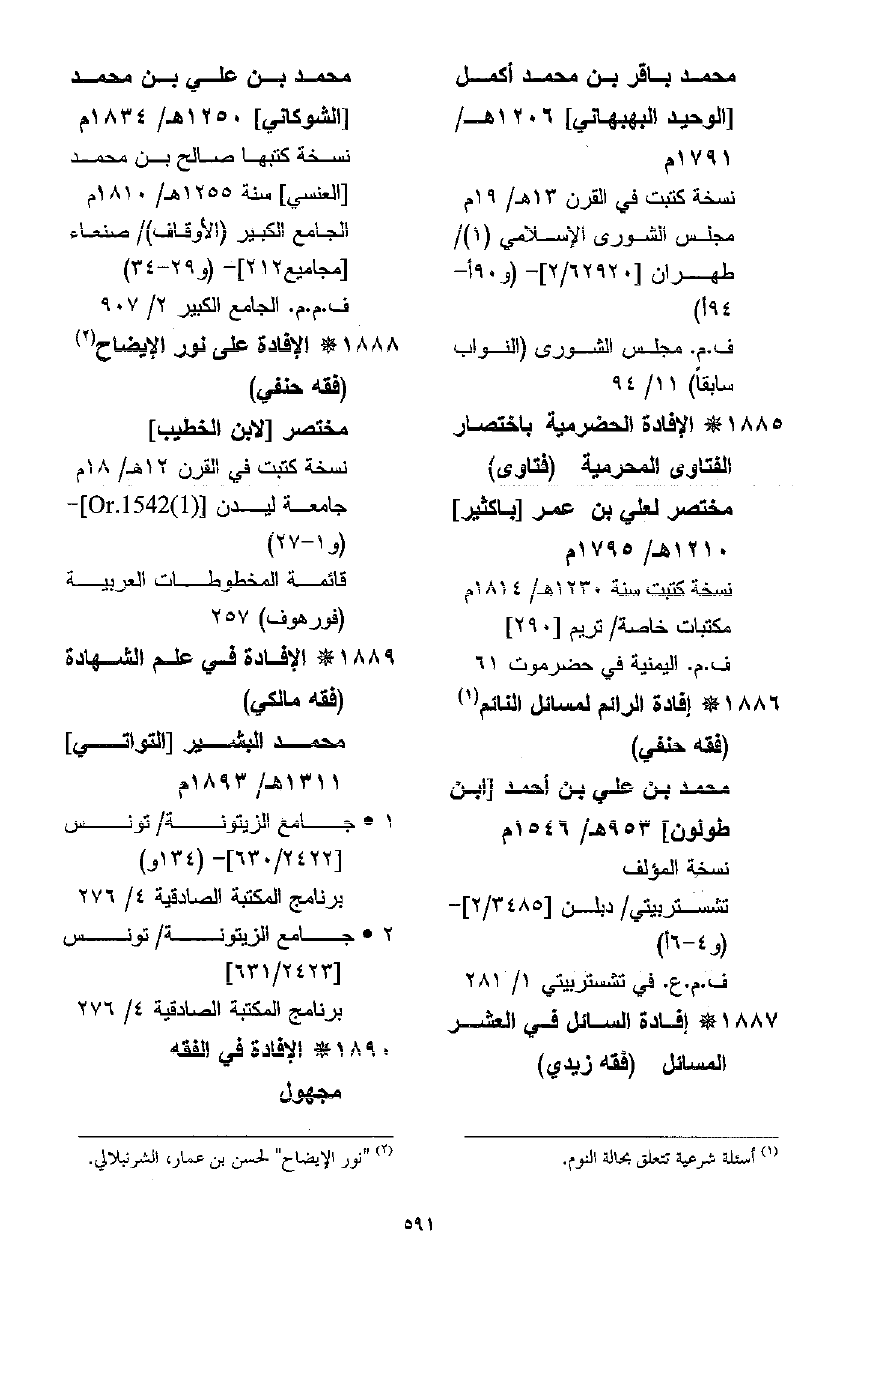 محمد باقر بن محمد أكمل
[الوحيد البهبهاني] ١٢٠٦هـ/
١٧٩١م
نسخة كتبت في القرن ١٣هـ/ ١٩م
مجلس الشورى الإسلامي (١)/
طهران [٢/٦٢٩٢٠]- (و٩٠أ-
٩٤أ)
ف.م. مجلس الشورى (النواب
سابقاً) ١١/ ٩٤
١٨٨٥* الإفادة الحضرمية باختصار
الفتاوى المحرمية (فتاوى)
مختصر لعلي بن عمر [باكثير]
١٢١٠هـ/ ١٧٩٥م
نسخة كتبت سنة ١٢٣٠هـ/ ١٨١٤م
مكتبات خاصة/ تريم [٢٩٠]
ف.م. اليمنية في حضرموت ٦١
١٨٨٦* إفادة الرائم لمسائل النائم(١)
(فقه حنفي)
محمد بن علي بن أحمد [ابن
طولون] ٩٥٣هـ/ ١٥٤٦م
نسخة المؤلف
تشستربيتي/ دبلن [٢/٣٤٨٥]-
(و٤-٦أ)
ف.م.ع. في تشستربيتي ١/ ٢٨١
١٨٨٧* إفادة السائل في العشر
المسائل (فقه زيدي)
(١) أسئلة شرعية تتعلق بحالة النوم.
محمد بن علي بن محمد
[الشوكاني] ١٢٥٠هـ/ ١٨٣٤م
نسخة كتبها صالح بن محمد
[العنسي] سنة ١٢٥٥هـ/ ١٨١٠م
الجامع الكبير (الأوقاف)/ صنعاء
[مجاميع٢١٢]- (و٢٩-٣٤)
ف.م.م. الجامع الكبير ٢/ ٩٠٧
١٨٨٨* الإفادة على نور الإيضاح(٢)
(فقه حنفي)
مختصر [لابن الخطيب]
نسخة كتبت في القرن ١٢هـ/ ١٨م
جامعة ليدن [Or.1542(1)]-
(و١-٢٧)
قائمة المخطوطات العربية
(فورهوف) ٢٥٧
١٨٨٩* الإفادة في علم الشهادة
(فقه مالكي)
محمد البشير [التواتي]
١٣١١هـ/ ١٨٩٣م
١ • جامع الزيتونة/ تونس
[٦٣٠/٢٤٢٢]- (١٣٤و)
برنامج المكتبة الصادقية ٤/ ٢٧٦
٢ • جامع الزيتونة/ تونس
[٦٣١/٢٤٢٣]
برنامج المكتبة الصادقية ٤/ ٢٧٦
١٨٩٠* الإفادة في الفقه
مجهول
(٢) "نور الإيضاح" لحسن بن عمار، الشرنبلالي.
٥٩١